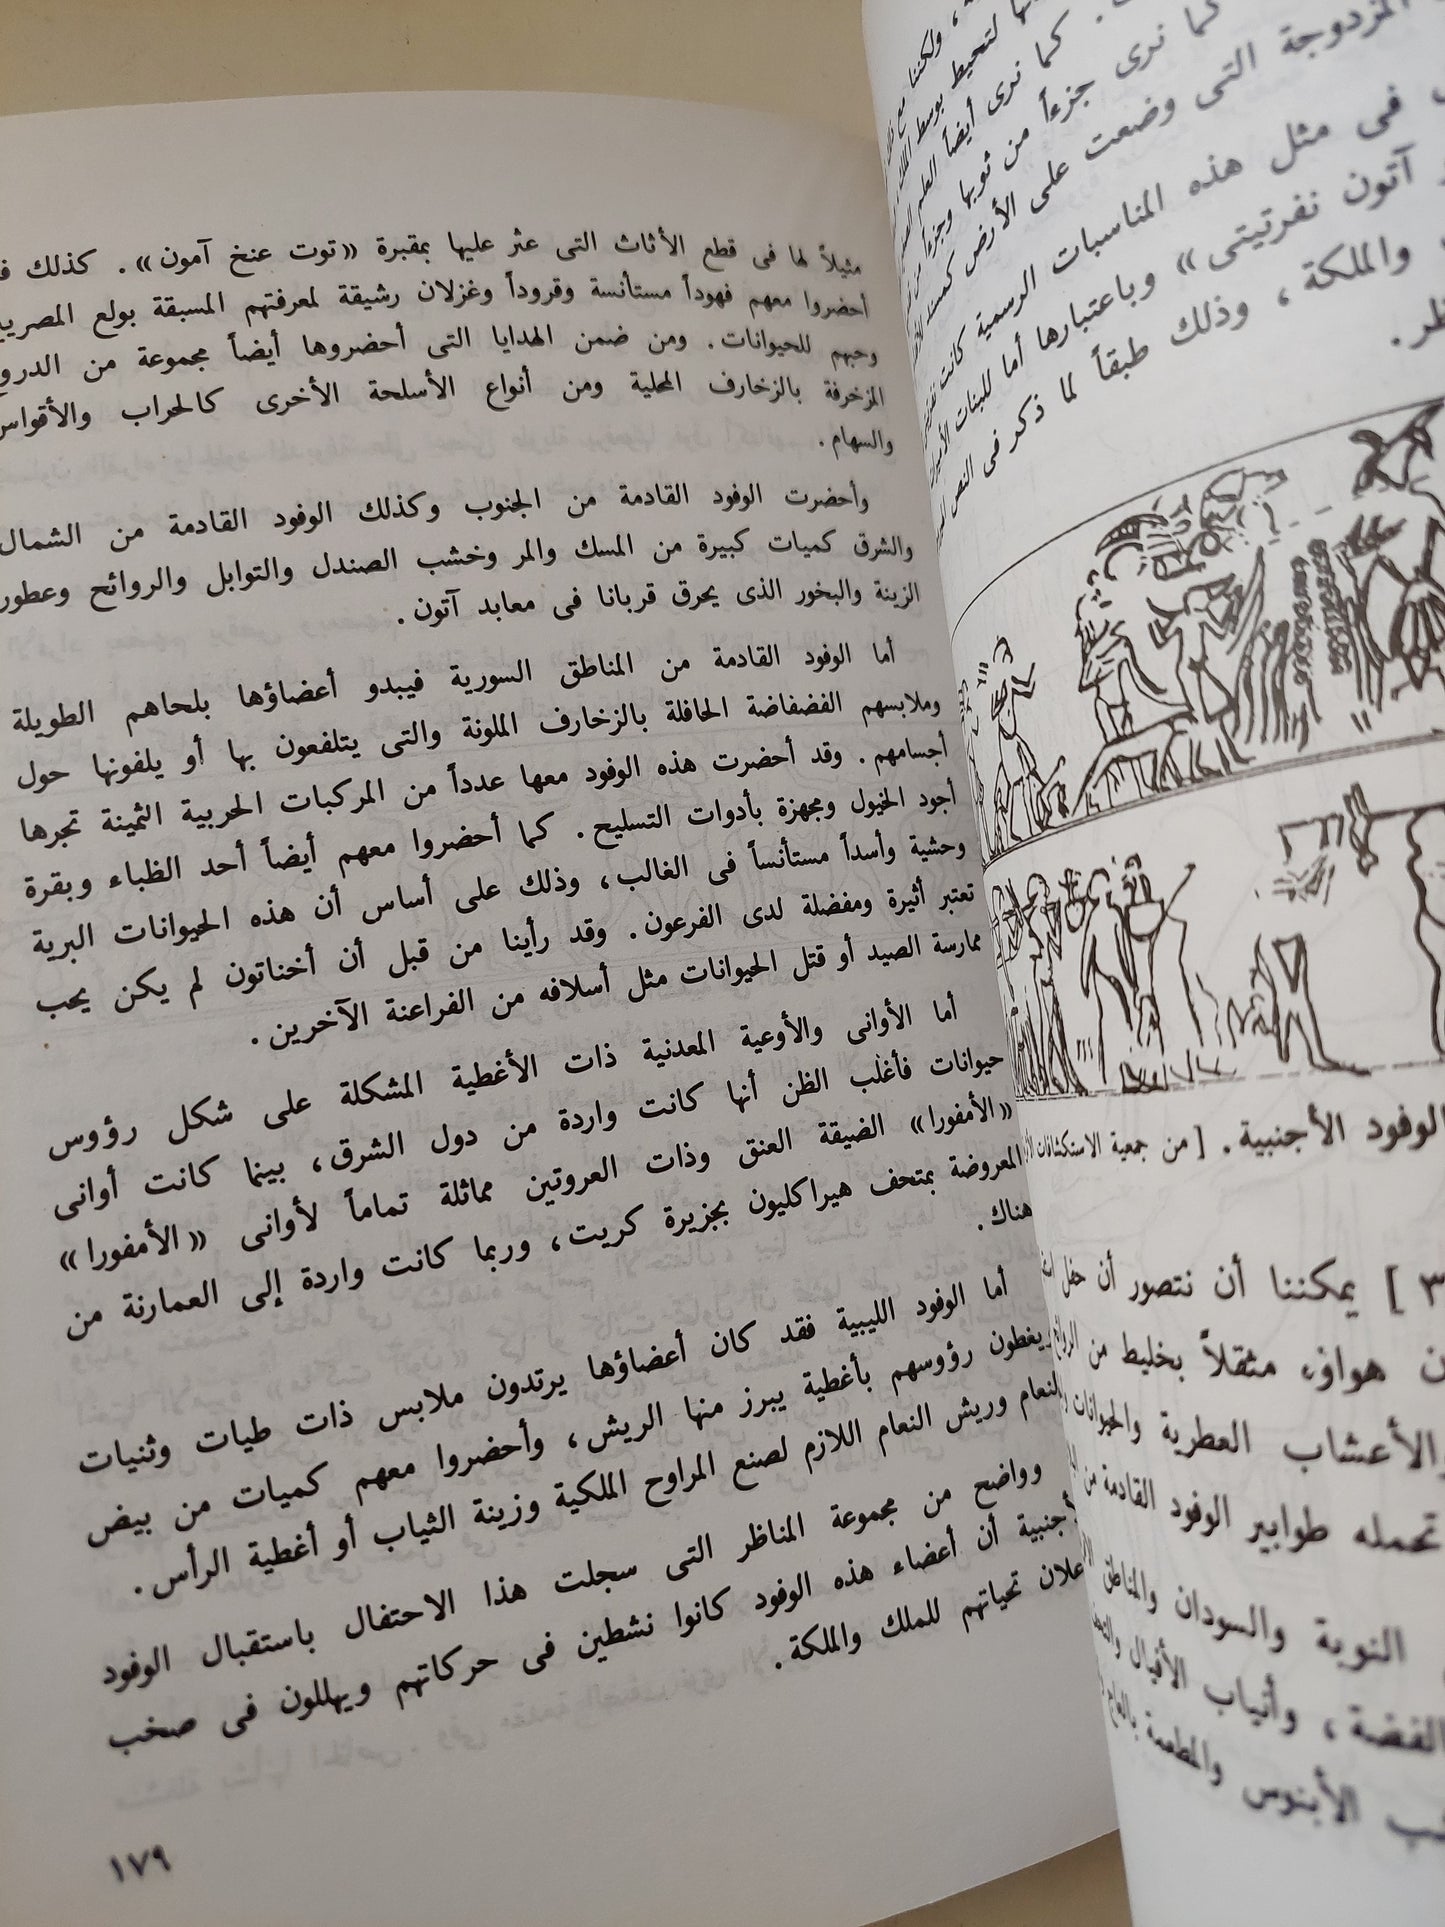 ، ولكننا مع
لتحيط بوسط
كما نرى أيضاً
كما نرى جزءاً من ثوبها وجزءاً من
المزدوجة التى وضعت على الأرض
فى مثل هذه المناسبات الرسمية كانت
آتون نفرتيتى» وباعتبارها أما للبنات
والملكة ، وذلك طبقاً لما ذكر فى النص
الوفود الأجنبية . [ من جمعية الاستكشافات
٣ ] يمكننا أن نتصور أن حفل
هواؤه مثقلاً بخليط من الروائح
والأعشاب العطرية والحيوانات
تحمله طوابير الوفود القادمة من
النوبة والسودان والمناطق
الفضة ، وأنياب الأفيال
الأبنوس والمطعمة بالعاج
مثيلاً لها فى قطع الأثاث التى عثر عليها بمقبرة «توت عنخ آمون» . كذلك
أحضروا معهم فهوداً مستأنسة وقروداً وغزلان رشيقة لمعرفتهم المسبقة بولع
وحبهم للحيوانات . ومن ضمن الهدايا التى أحضروها أيضاً مجموعة من
المزخرفة بالزخارف المحلية ومن أنواع الأسلحة الأخرى كالحراب والأقواس
والسهام .
وأحضرت الوفود القادمة من الجنوب وكذلك الوفود القادمة من الشمال
والشرق كميات كبيرة من المسك والمر وخشب الصندل والتوابل والروائح وعطور
الزينة والبخور الذى يحرق قربانا فى معابد آتون .
أما الوفود القادمة من المناطق السورية فيبدو أعضاؤها بلحاهم الطويلة
وملابسهم الفضفاضة الحافلة بالزخارف الملونة والتى يتلفعون بها أو يلفونها حول
أجسامهم . وقد أحضرت هذه الوفود معها عدداً من المركبات الحربية الثمينة تجرها
أجود الخيول ومجهزة بأدوات التسليح . كما أحضروا معهم أيضاً أحد الظباء وبقرة
وحشية وأسداً مستأنساً فى الغالب ، وذلك على أساس أن هذه الحيوانات البرية
تعتبر أثيرة ومفضلة لدى الفرعون . وقد رأينا من قبل أن أخناتون لم يكن يحب
ممارسة الصيد أو قتل الحيوانات مثل أسلافه من الفراعنة الآخرين .
أما الأوانى والأوعية المعدنية ذات الأغطية المشكلة على شكل رؤوس
حيوانات فأغلب الظن أنها كانت واردة من دول الشرق ، بينما كانت أوانى
«الأمفورا» الضيقة العنق وذات العروتين مماثلة تماماً لأوانى «الأمفورا»
المعروضة بمتحف هيراكليون بجزيرة كريت ، وربما كانت واردة إلى العمارنة من
هناك .
أما الوفود الليبية فقد كان أعضاؤها يرتدون ملابس ذات طيات وثنيات
ويغطون رؤوسهم بأغطية يبرز منها الريش ، وأحضروا معهم كميات من بيض
النعام وريش النعام اللازم لصنع المراوح الملكية وزينة الثياب أو أغطية الرأس .
وواضح من مجموعة المناظر التى سجلت هذا الاحتفال باستقبال الوفود
الأجنبية أن أعضاء هذه الوفود كانوا نشطين فى حركاتهم ويهللون فى صخب
تحياتهم للملك والملكة .
١٧٩